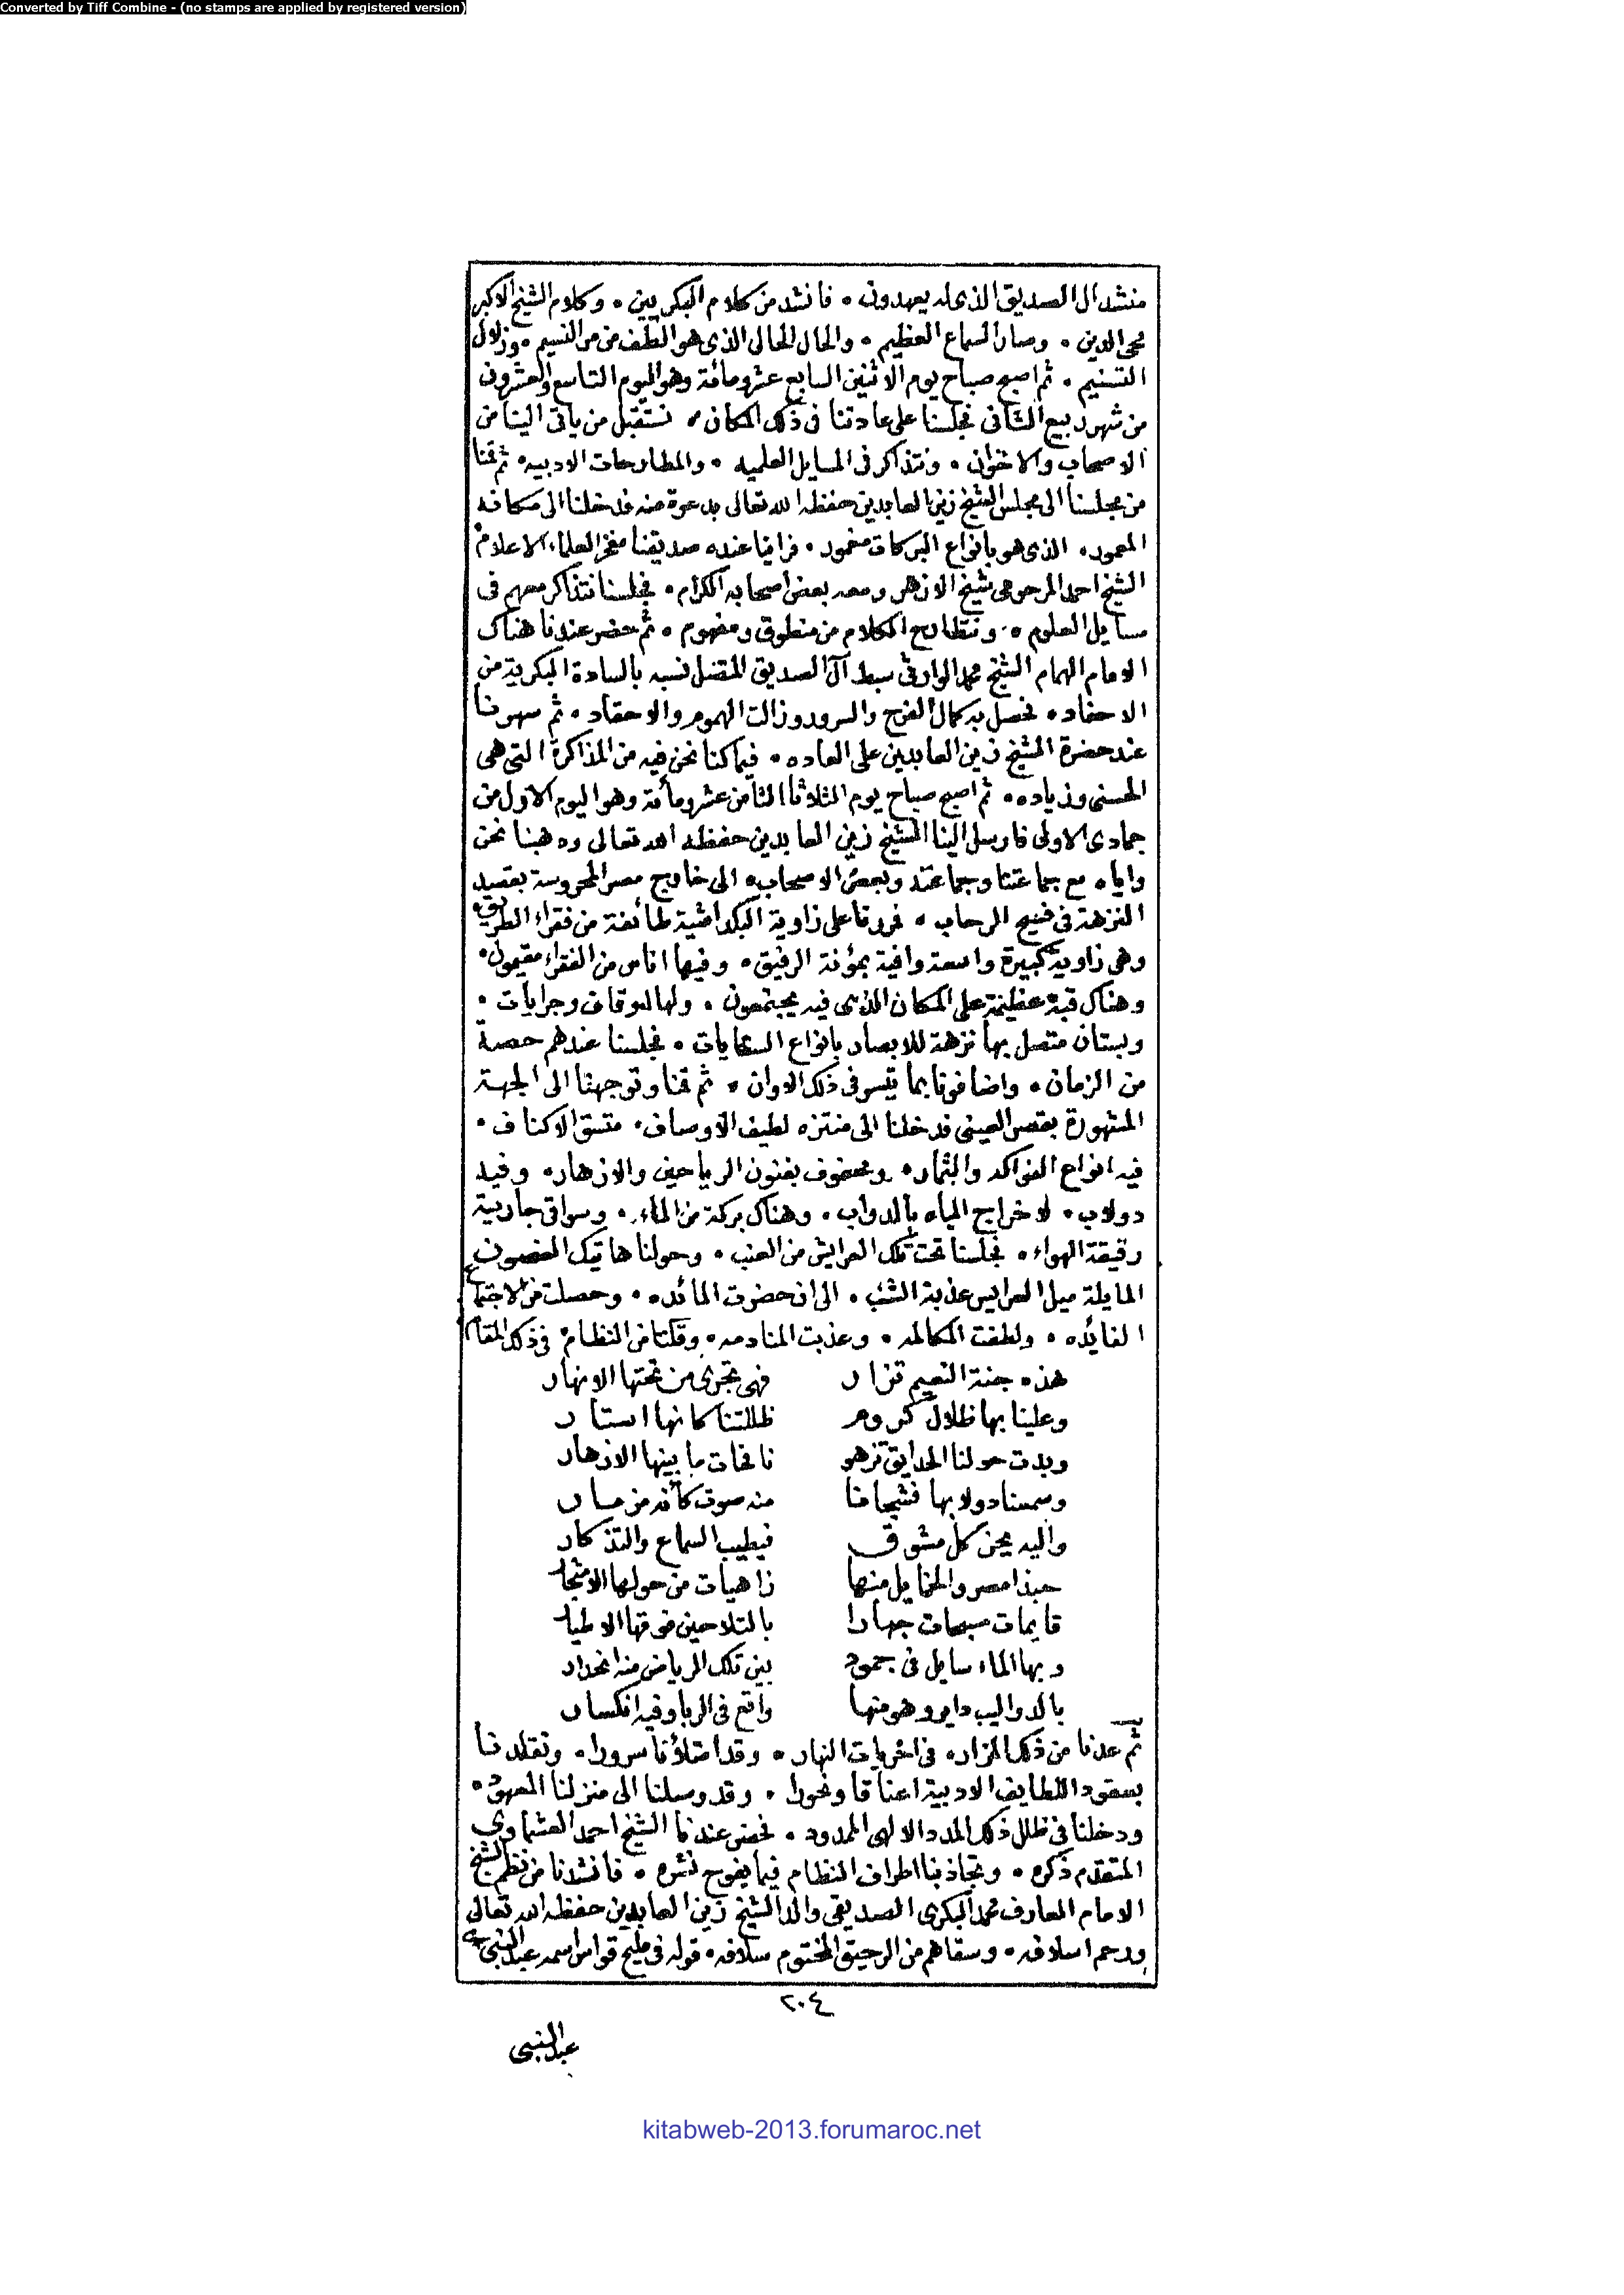 Converted by Tiff Combine - (no stamps are applied by registered version)
منشد ال الصديق الذى له يعهدون . فانشد من كلام البكريين . وكلام الشيخ الاكبر
محى الدين . وصار السماع العظيم . والحال الحالى الذى هو الطف من مر النسيم . وزلال
التسنيم . ثم اصبح صباح يوم الاثنين السابع عشر ومائة وهو اليوم التاسع والعشرون
من شهر ربيع الثانى فجلسنا على عادتنا فى ذلك المكان . نستقبل من ياتى الينا من
الاصحاب والاخوان . ونتذاكر فى المسايل العلميه . والمطارحات الادبيه . ثم قمنا
من مجلسنا الى مجلس الشيخ زين العابدين حفظه الله تعالى بدعوة منه فدخلنا الى مكانه
المعمور . الذى هو بانواع البركات مغمور . فراينا عنده صديقنا مفخر العلماء الاعلام
الشيخ احمد المرحومى شيخ الازهر ومعه بعض اصحابه الكرام . فجلسنا نتذاكر معهم فى
مسايل العلوم . ونتطارح الكلام من منطوق ومفهوم . ثم حضر عندنا هناك
الامام الهمام الشيخ محمد الوارثى سبط آل الصديق المتصل نسبه بالسادة البكرية من
الاحفاد . فحصل به كمال الفرح والسرور وزالت الهموم والاحقاد . ثم سهرنا
عند حضرة الشيخ زين العابدين على العاده . فيما كنا نحن فيه من المذاكرة التى هى
الحسنى وزياده . ثم اصبح صباح يوم الثلاثا الثامن عشر ومائة وهو اليوم الاول من
جمادى الاولى فارسل الينا الشيخ زين العابدين حفظه الله تعالى وذهبنا نحن
واياه مع جماعتنا وجماعته وبعض الاصحاب . الى خارج مصر المحروسة بقصد
النزهة فى فسيح الرحاب . فمررنا على زاوية البكداشية طائفة من فقراء الطريق
وهى زاوية كبيرة واسعة وافية بمؤنة الرفيق . وفيها اناس من الفقراء مقيمون .
وهناك قبة عظيمة على المكان الذى فيه يجتمعون . ولها اوقاف وجرايات .
وبستان متصل بها نزهة للابصار بانواع . فجلسنا عندهم حصة
من الزمان . واضافونا بما تيسر فى ذلك الاوان . ثم قمنا وتوجهنا الى الجهة
المشهورة بقصر العينى فدخلنا الى منتزه لطيف الاوصاف . متسق الاكناف .
فيه انواع الفواكه والثمار . ومحفوف بفنون الرياحين والازهار . وفيه
دولاب . لاخراج المياه بالدواب . وهناك بركة من الماء . وسواقى جارية
رقيقة الهواء . فجلسنا تحت تلك العرايش من العنب . وحولنا هاتيك الغصون
المايلة ميل العرايس عذبة الشنب . الى ان حضرت المائده . وحصلت من الاجتماع
الفائده . ولطفت المكالمه . وعذبت المنادمه . وقلنا من النظام فى ذلك المقام
هذه جنة النعيم تزار فهى تجرى من تحتها الانهار
وعلينا بها ظلال كروم ظللتنا كانها استار
وبدت حولنا الحدايق تزهو نافحات ما بينها الازهار
وسمعنا دولابها فشجانا منه صوت كأنه مزمار
واليه يحن كل مشوق فيطيب السماع والتذكار
حبذا مصر والخمايل منها زاهيات من حولها الاشجار
قايمات مسبحات جهارا بالتلاحين فوقها الاطيار
وبها الماء سايل فى جمود بين تلك الرياض منه انحدار
بالدواليب داير وهو منها واقع فى الربا وفيه انكسار
ثم عدنا من ذلك المزار . فى اخريات النهار . وقد امتلأنا سرورا . وتقلدنا
بعقود اللطايف الادبية اعناقا ونحورا . وقد وصلنا الى منزلنا المعهود .
ودخلنا فى ظلل ذلك المدد الالهى الممدود . فحضر عندنا الشيخ احمد العشماوى
المتقدم ذكره . وتجاذبنا اطراف النظام فيما يفوح نشره . فانشدنا من نظم الشيخ
الامام العارف محمد البكرى الصديقى والد الشيخ زين العابدين حفظه الله تعالى
ورحم اسلافه . وسقاهم من الرحيق المختوم سلافه . قوله فى مليح قواس اسمه عبد النبى
٢٠٤
عبد النبى
kitabweb-2013.forumaroc.net